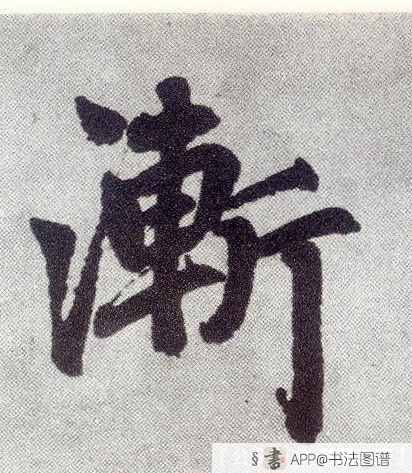 漸
§書 APP@书法图谱